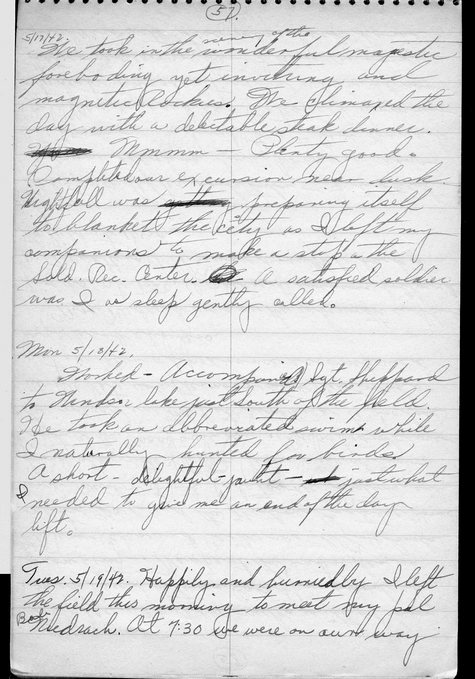 57.
5/17/42.
scenery of the
We took in the wonderful majestic
foreboding yet inviting and
magnetic Rockies. We climaxed the
day with a delectable steak dinner.
Mmmm – Plenty good.
Completed our excursion near dusk.
Nightfall was preparing itself
to blanket the city as I left my
companions to make a stop at the
Sold. Rec. Center. A satisfied soldier
was I as sleep gently called.
Mon 5/18/42.
Worked – Accompanied Sgt. Sheppard
to Windsor lake just South of the field
He took an abbreviated swim while
I naturally hunted for birds.
A short – delightful – jaunt – just what
I needed to give me an end of the day
lift.
Tues. 5/19/42. Happily and hurriedly I left
the field this morning to meet my pal
Bob Niedrach. At 7:30 we were on our way